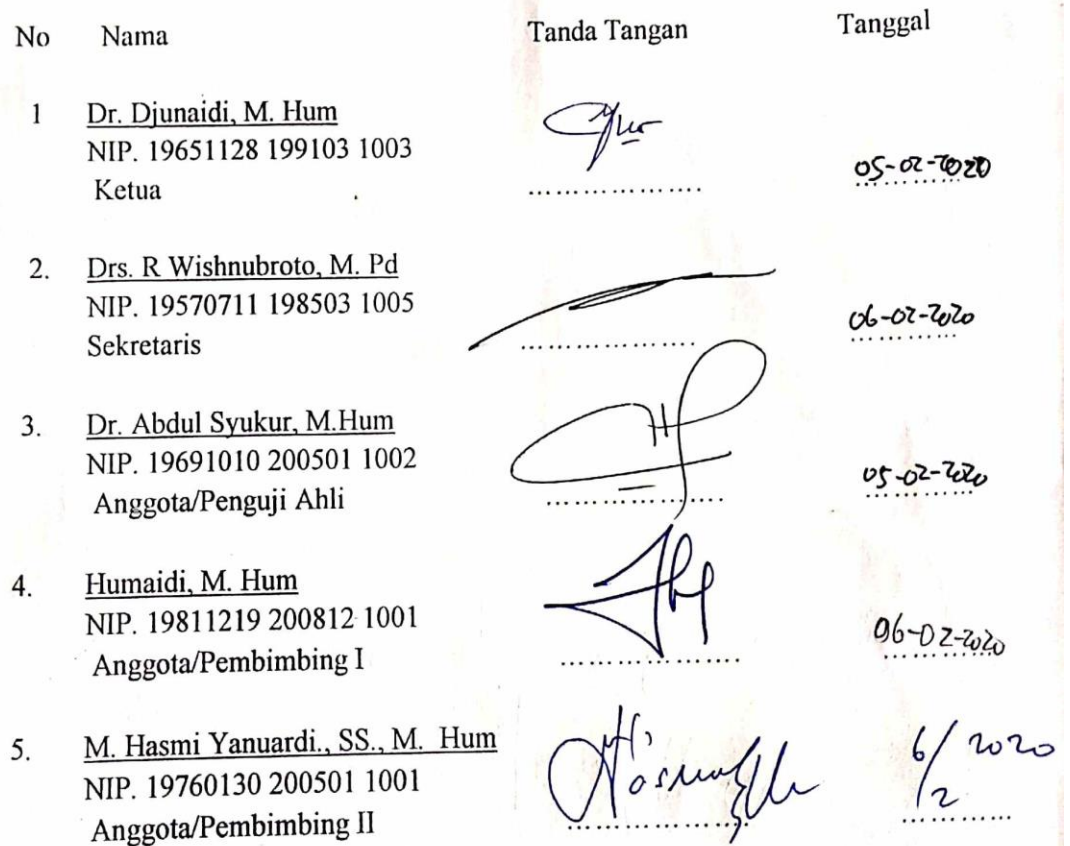 No Nama Tanda Tangan Tanggal
1 Dr. Djunaidi, M. Hum
NIP. 19651128 199103 1003
Ketua .................. 05-02-2020
2. Drs. R Wishnubroto, M. Pd
NIP. 19570711 198503 1005
Sekretaris .................. 06-02-2020
3. Dr. Abdul Syukur, M.Hum
NIP. 19691010 200501 1002
Anggota/Penguji Ahli .................. 05-02-2020
4. Humaidi, M. Hum
NIP. 19811219 200812 1001
Anggota/Pembimbing I .................. 06-02-2020
5. M. Hasmi Yanuardi., SS., M. Hum
NIP. 19760130 200501 1001 6/2 2020
Anggota/Pembimbing II ..................